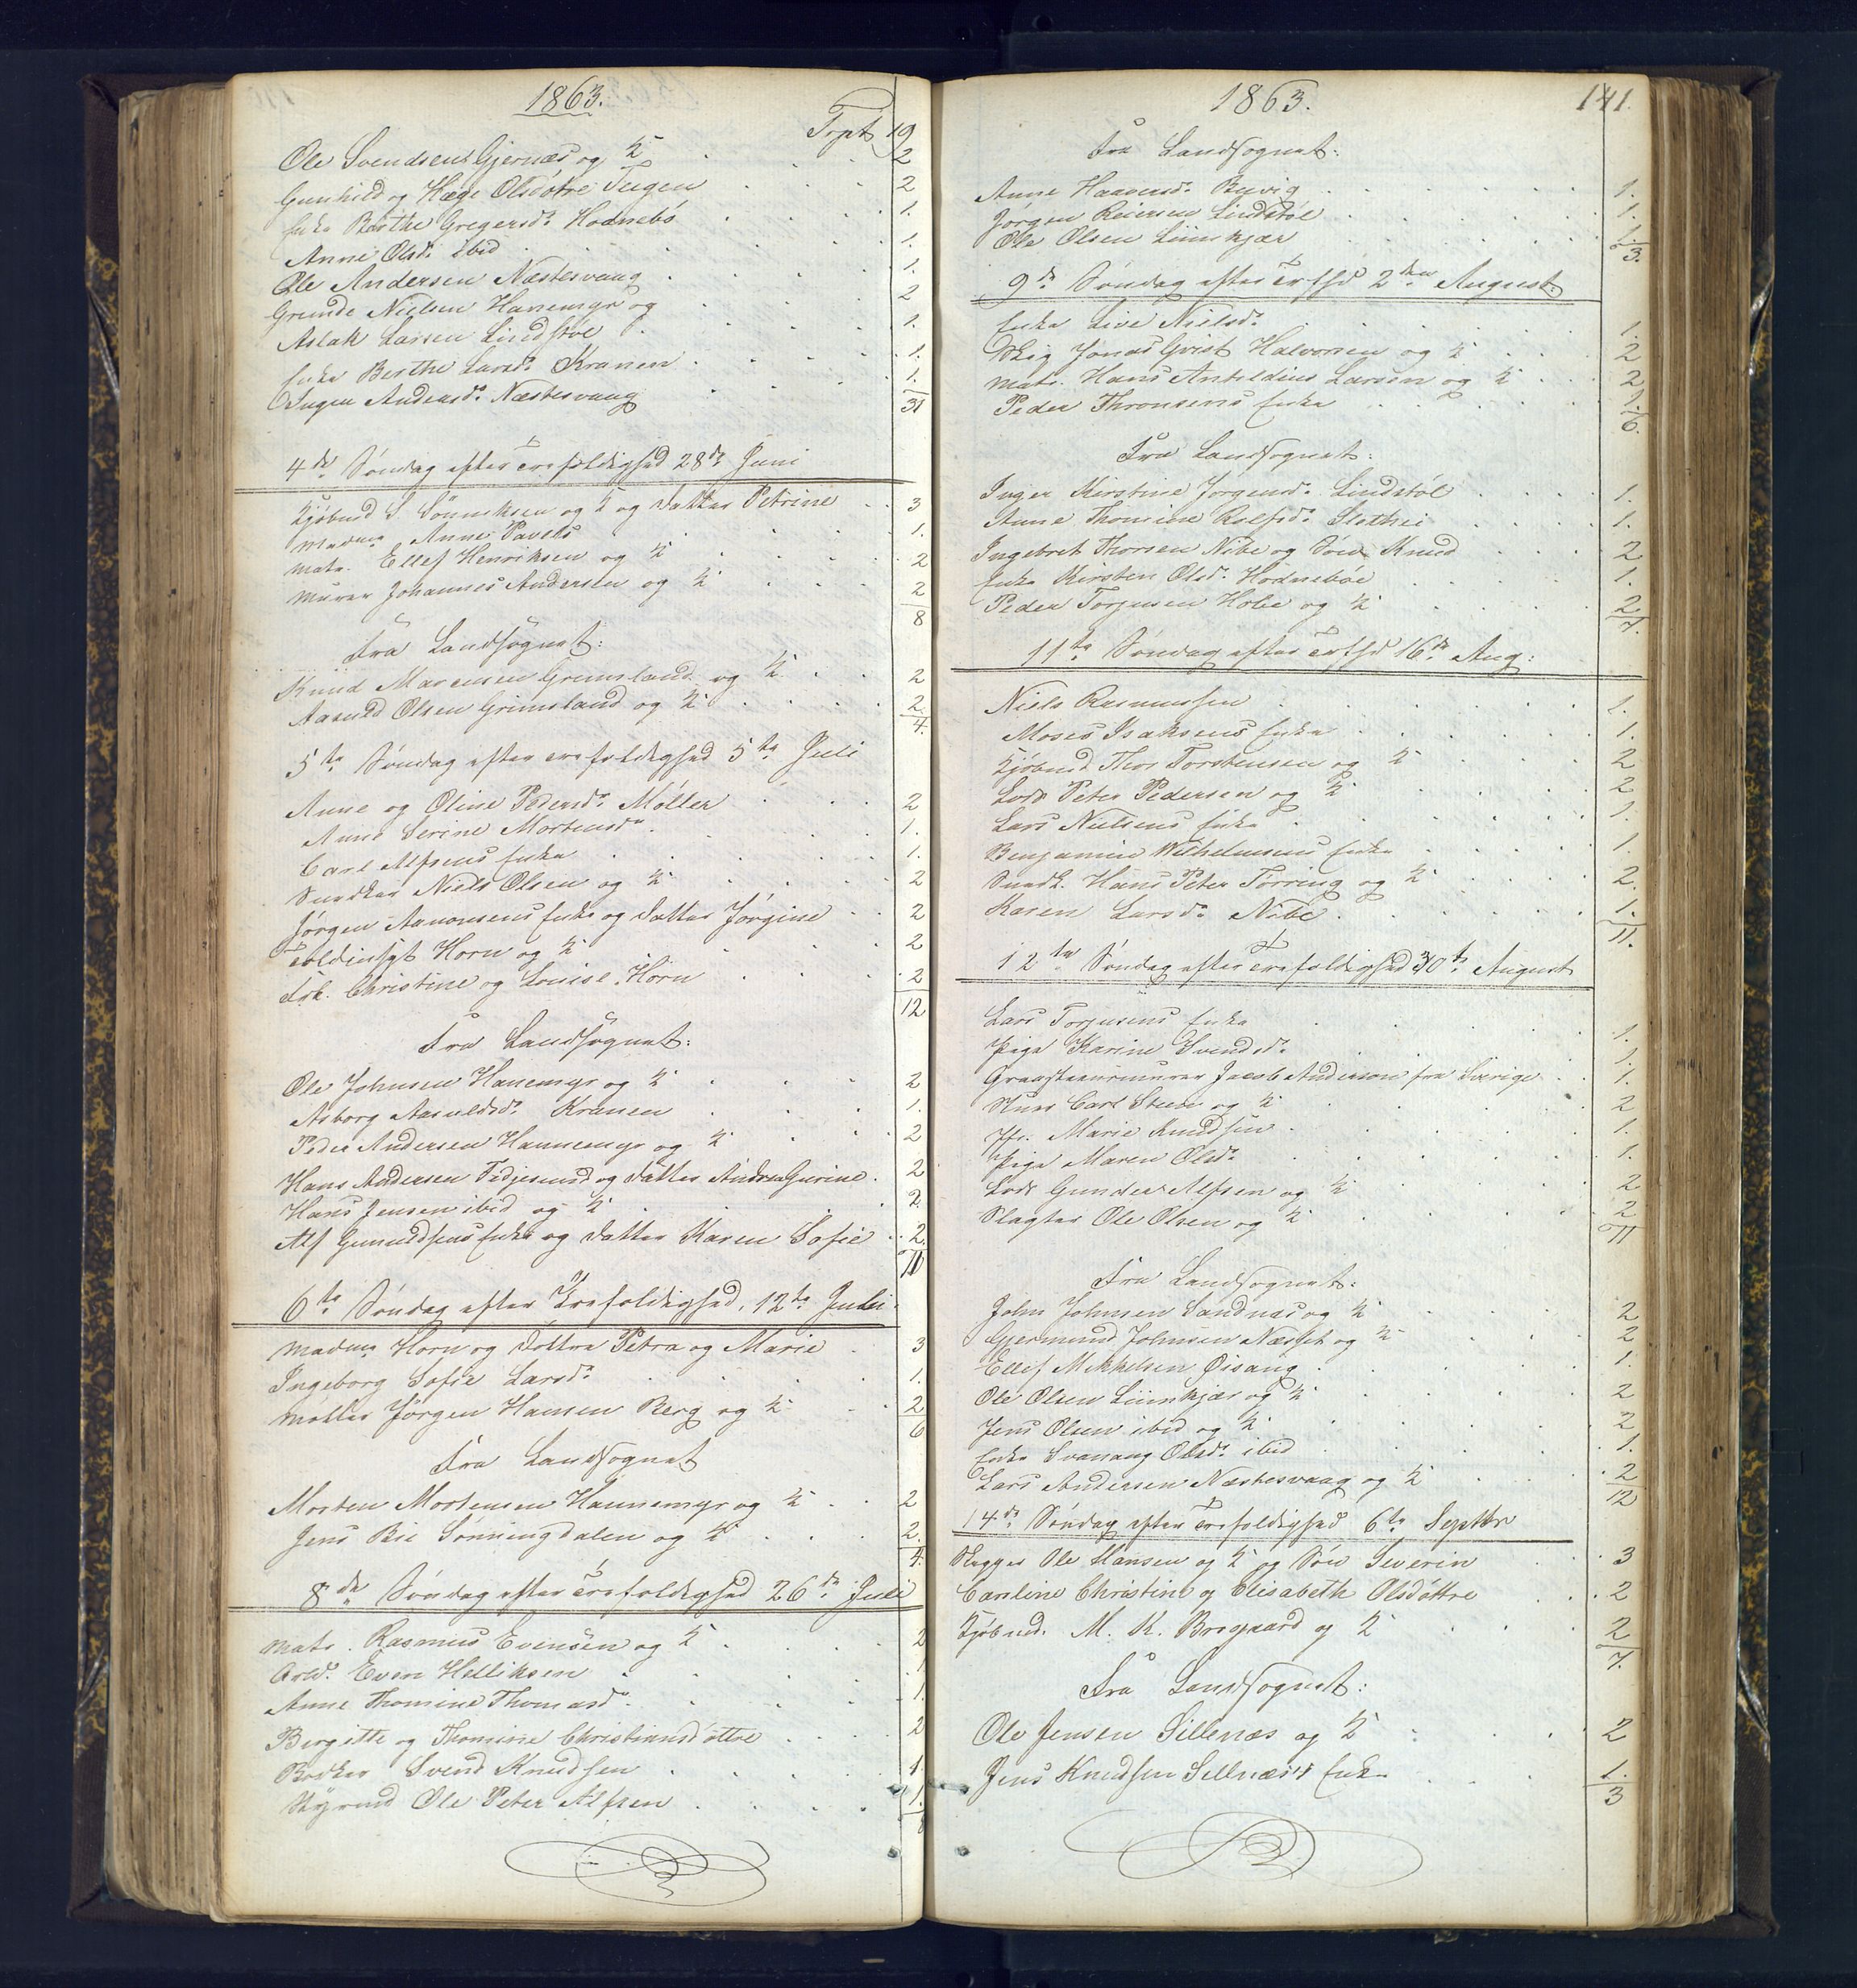 1863.
Trpt 19
Ole Svendsen Gjernæs og K 2
Gunhild og Hæge Olsdøtre Teigen 2
Enke Berthe Gregersd. Hodnebö 1.
Anne Olsd. ibid 1.
Ole Andersen Næstesvaag 1.
Grunde Nielsen Hanemyr og 2
Aslak Larsen Lindstøl 1.
Enke Berthe Larsd. Kranen 1.
Ingen Andersd. Næstesvaag 1.
31
4de Söndag efter Trefoldighed 28de Juni
Kjöbmd S. Sönniksen og K og Datter Petrine 3
Madme Anne Pavels 1.
Matr. Ellef Henriksen og K 2
Murer Johannes Andersen og K 2
8
Fra Landsognet:
Knud Marcusen Grimsland og K 2
Aanuld Olsen Grimsland og K 2
4.
5te Söndag efter Trefoldighed 5te Juli
Anne og Oline Pedersd. Möller 2
Anne Serine Mortensd. 1.
Carl Alfsens Enke 1.
Snedker Niels Olsen og K 2
Jörgen Aanonsens Enke og Datter Jörgine 2
Toldinspt Horn og K 2
Frk. Christine og Louise Horn 2
12
Fra Landsognet:
Ole Johnsen Hanemyr og K 2
Asborg Aasuldsd. Kranen 1.
Peder Andersen Hannemyr og K 2
Hans Andersen Fidjesund og Datter Andrea Gurine. 2
Hans Jensen ibid og K 2
Alf Gunuldsens Enke og Datter Karen Sofie 2
11
6te Söndag efter Trefoldighed, 12te Juli.
Madme Horn og Döttre Petra og Marie 3
Ingeborg Sofie Larsd. 1.
Möller Jörgen Hansen Berg og K 2
6
Fra Landsognet
Morten Mortensen Hannemyr og K 2
Jens Bie Sönningdalen og K 2.
4.
8de Söndag efter Trefoldighed 26de Juli
Matr. Rasmus Evensen og K 2
Arbd. Even Helliksen 1
Anne Thomine Thomasd. 1.
Birgitte og Thomine Christiansdöttre 2
Bödker Svend Knudsen 1.
Styrmd Ole Peter Alfsen 1.
8
1863.
141.
Fra Landsognet:
Anne Haaversd. Birvig 1.
Jörgen Reiersen Lindstöl 1.
Ole Olsen Liimkjær 1.
3.
9de Söndag efter Trefhd 2den August.
Enke Live Nielsd. 1.
Skig Jonas Qvist Halvorsen og K 2
Matr. Hans Antildius Larsen og K 2
Peder Thronsens Enke 1.
6.
Fra Landsognet:
Inger Kirstine Jörgensd. Lindstöl 1.
Anne Thomine Rolfsd. Slothei 1.
Ingebret Thorsen Nibe og Sön Knud 2
Enke Kirsten Olsd. Hodneböe 1.
Peder Torjusen Holie og K 2
7.
11te Söndag efter Trefhd 16de Aug:
Niels Rasmussen 1.
Moses Isaksens Enke 1.
Kjöbmd. Thor Torstensen og K 2
Lods Peter Pedersen og K 2
Lars Nielsens Enke 1.
Benjamin Wilhelmsens Enke 1.
Snedk. Hans Peter Torring og K 2.
Karen Larsd. Nibe 1.
11.
12te Söndag efter Trefoldighed 30te August
Lars Torjusens Enke 1.
Pige Karine Svendsd. 1.
Graasteensmurer Jacob Anderson fra Sverige 1.
Skuer Carl Steen og K 2
Jfr. Marie Knudsen 1.
Pige Maren Olsd. 1.
Lods Gunder Alfsen og K 2
Slagter Ole Olsen og K 2
11
Fra Landsognet:
John Johnsen Sandnæs og K 2
Gjermund Johnsen Næsset og K 2
Ellef Mikkelsen Øisang 1.
Ole Olsen Liimkjær og K 2
Jens Olsen ibid og K 2
Enke Svanaug Olsd. ibid 1.
Lars Andersen Næstesvaag og K 2
12
14de Söndag efter Trefoldighed 6te Septbr
Skipper Ole Hansen og K og Sön Severin 3
Caroline Christine og Elisabeth Olsdöttre 2
Kjöbmd. M. K. Bregaard og K 2
7.
Fra Landsognet:
Ole Jensen Sillenæs og K 2
Jens Knudsen Sellnæs's Enke 1.
3